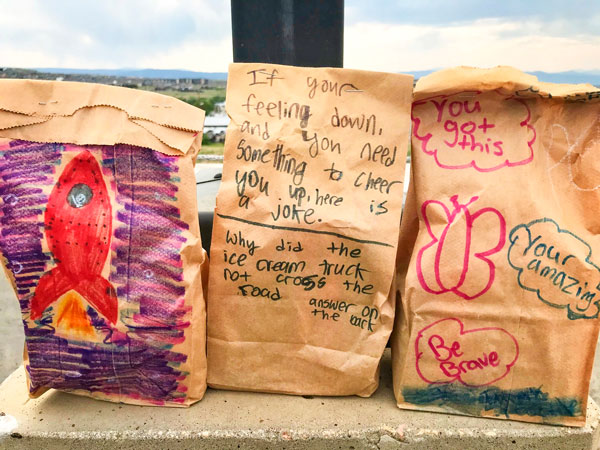 If your
feeling down,
and you need
something to cheer
you up, here is
a joke.
Why did the
ice cream truck
not cross the
road
answer on
the back
You
got
this
Your
amazing
Be
Brave